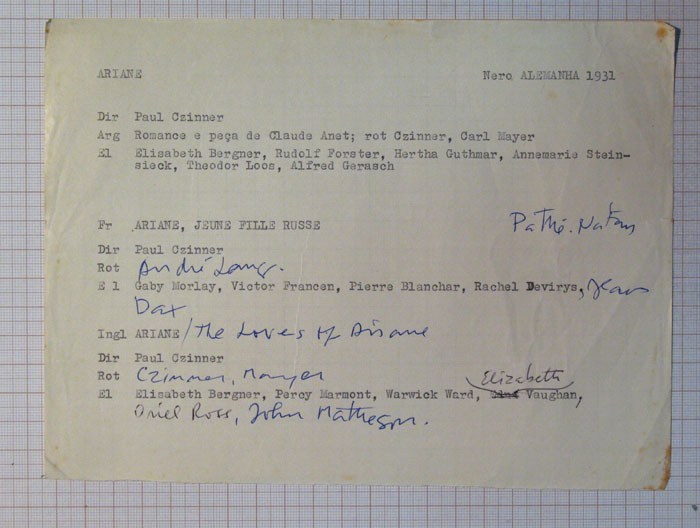 ARIANE Nero ALEMANHA 1931
Dir Paul Czinner
Arg Romance e peça de Claude Anet; rot Czinner, Carl Mayer
El Elisabeth Bergner, Rudolf Forster, Hertha Guthmar, Annemarie Stein-
sieck, Theodor Loos, Alfred Gerasch
Fr ARIANE, JEUNE FILLE RUSSE Pathé-Natan
Dir Paul Czinner
Rot André Lang.
E l Gaby Morlay, Victor Francen, Pierre Blanchar, Rachel Devirys, Jean
Dax
Ingl ARIANE/The Loves of Ariane
Dir Paul Czinner
Rot Czinner, Mayer
Elizabeth
El Elisabeth Bergner, Percy Marmont, Warwick Ward, Vaughan,
Oriel Ross, John Matheson.